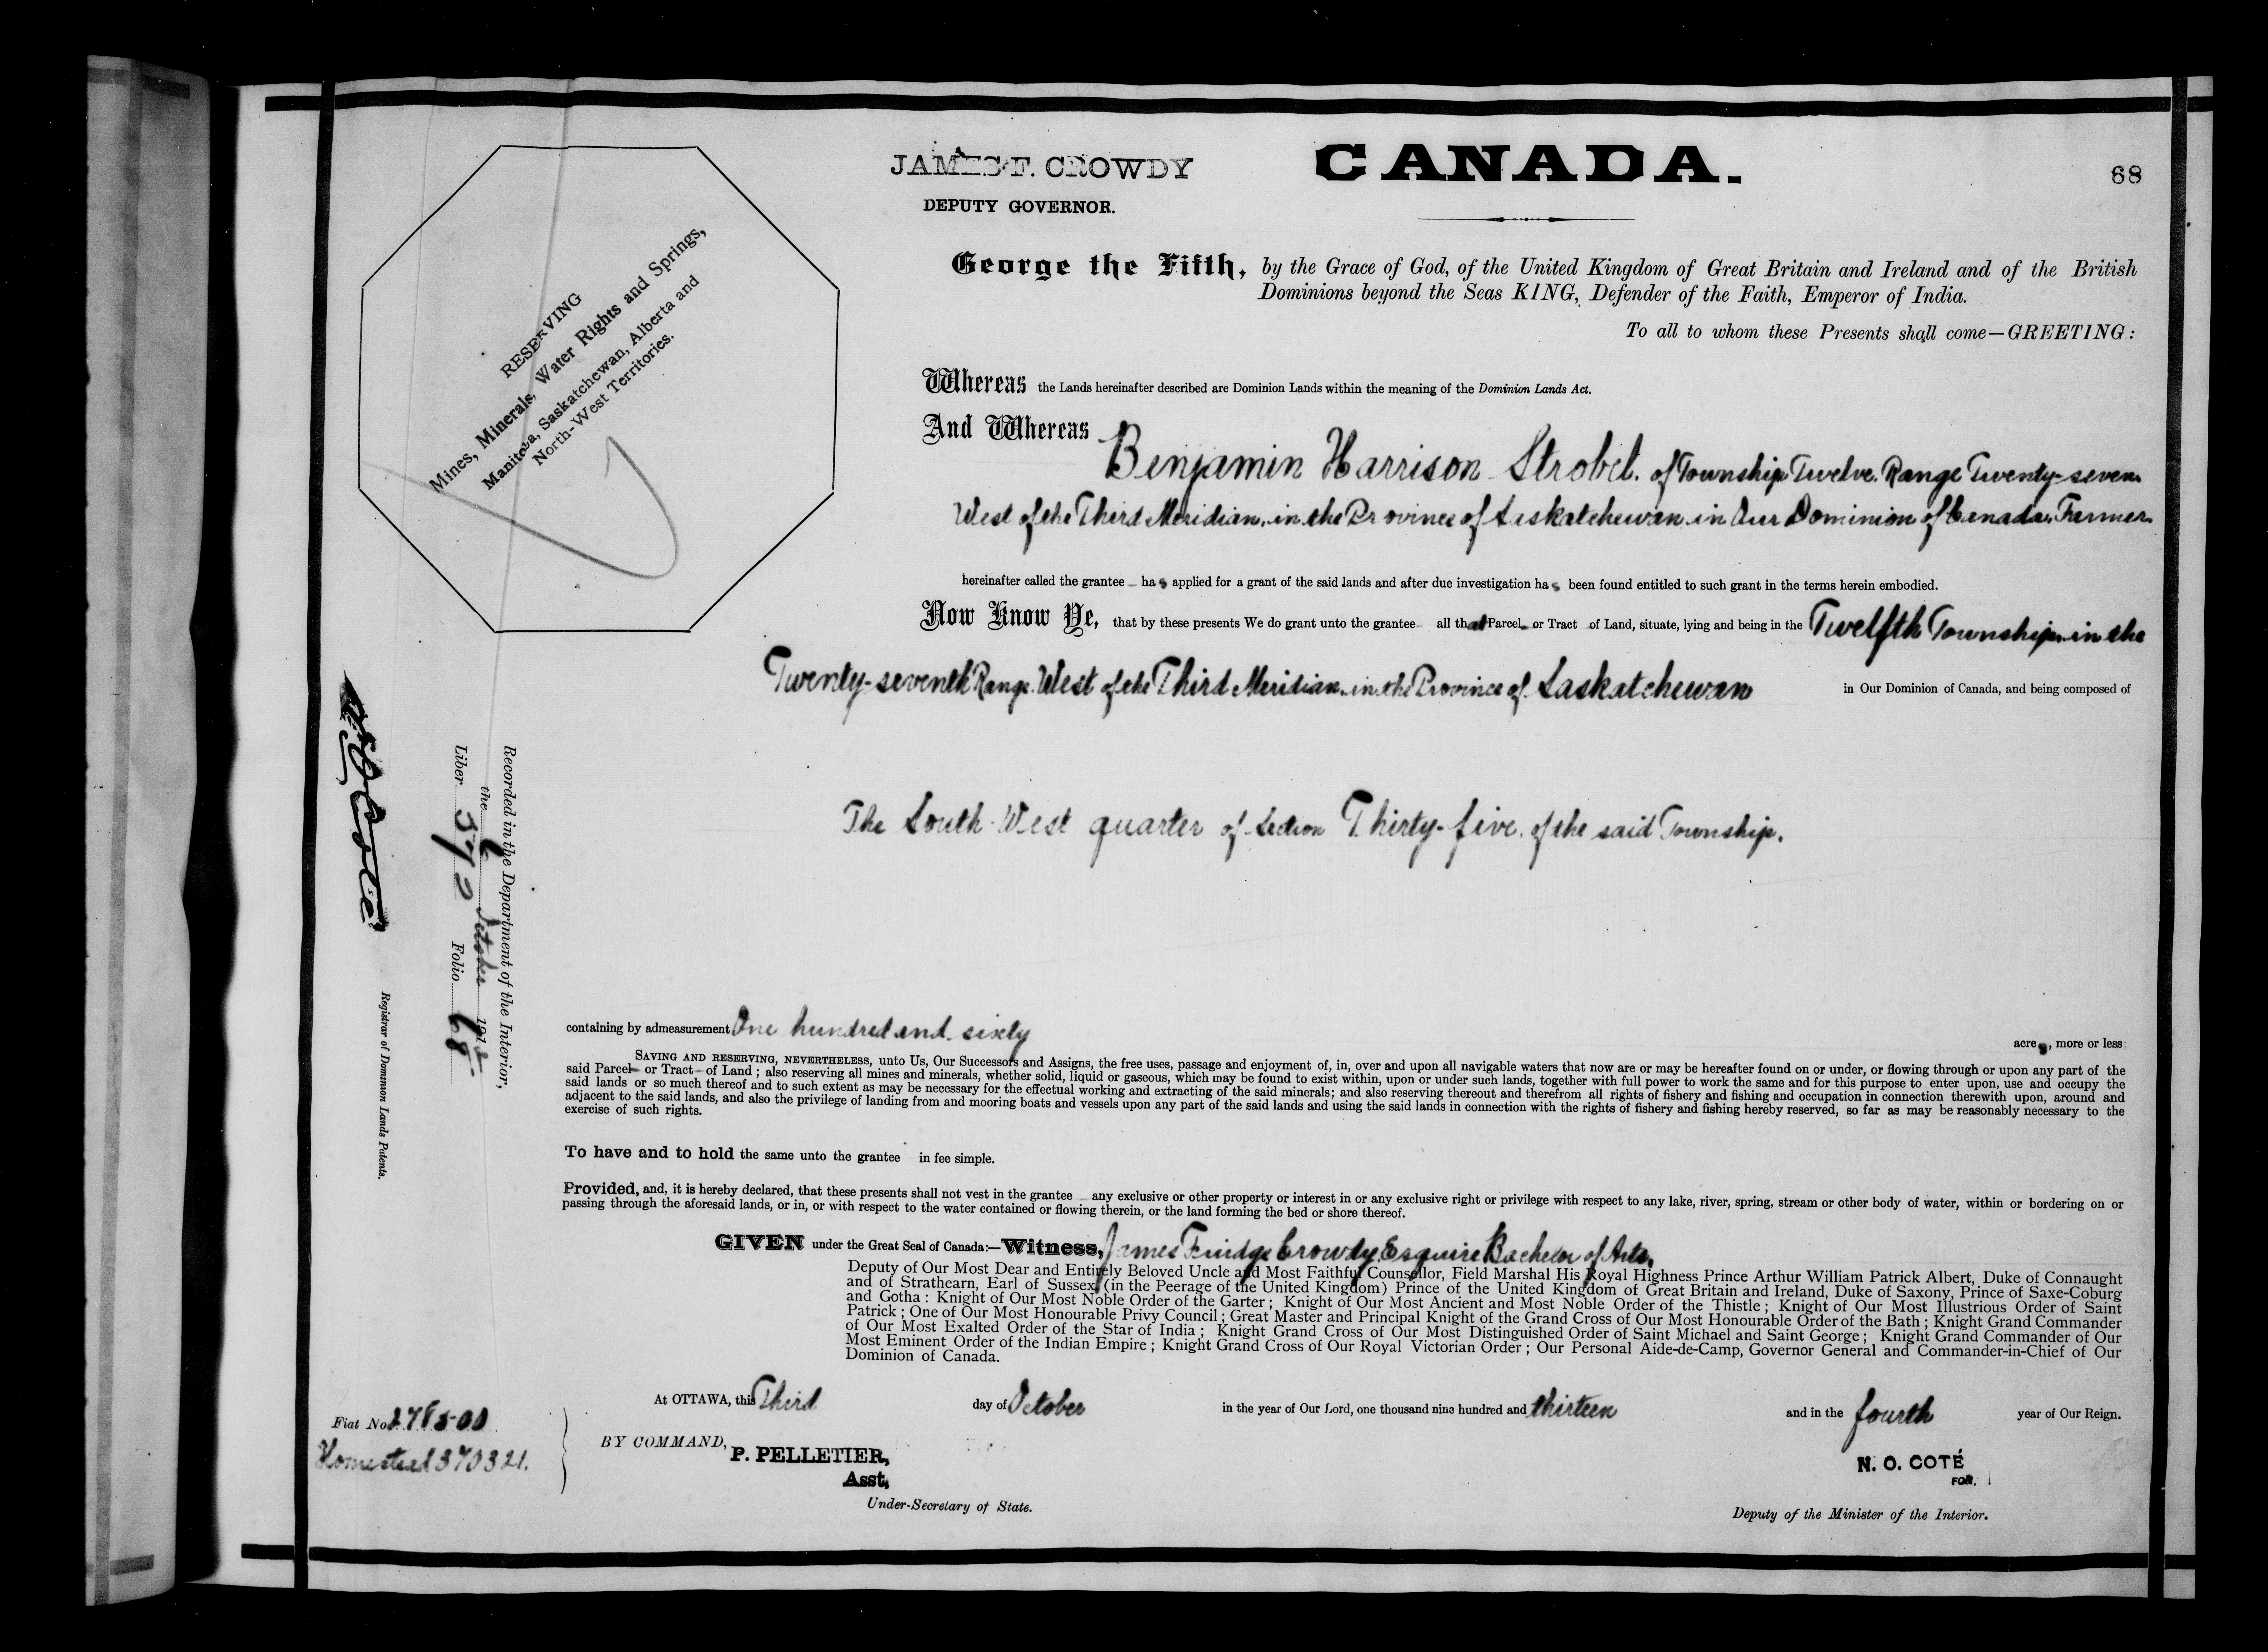 JAMES F. CROWDY
DEPUTY GOVERNOR.
CANADA.
68
RESERVING
Mines, Minerals, Water Rights and Springs,
Manitoba, Saskatchewan, Alberta and
North-West Territories.
George the Fifth, by the Grace of God, of the United Kingdom of Great Britain and Ireland and of the British
Dominions beyond the Seas KING, Defender of the Faith, Emperor of India.
To all to whom these Presents shall come—GREETING:
Whereas the Lands hereinafter described are Dominion Lands within the meaning of the Dominion Lands Act.
And Whereas
Benjamin Harrison Strobel. of Township Twelve. Range Twenty-seven
West of the Third Meridian. in the Province of Saskatchewan in Our Dominion of Canada. Farmer.
hereinafter called the grantee has applied for a grant of the said lands and after due investigation has been found entitled to such grant in the terms herein embodied.
Now Know Ye, that by these presents We do grant unto the grantee all that Parcel or Tract of Land, situate, lying and being in the Twelfth Township. in the
Twenty-seventh Range West of the Third Meridian. in the Province of Saskatchewan in Our Dominion of Canada, and being composed of
The South West quarter of Section Thirty-five. of the said Township.
Recorded in the Department of the Interior,
the October 191
Liber 372 Folio 68
Registrar of Dominion Lands Patents.
containing by admeasurement One hundred and sixty acres, more or less:
SAVING AND RESERVING, NEVERTHELESS, unto Us, Our Successors and Assigns, the free uses, passage and enjoyment of, in, over and upon all navigable waters that now are or may be hereafter found on or under, or flowing through or upon any part of the
said Parcel or Tract of Land ; also reserving all mines and minerals, whether solid, liquid or gaseous, which may be found to exist within, upon or under such lands, together with full power to work the same and for this purpose to enter upon, use and occupy the
said lands or so much thereof and to such extent as may be necessary for the effectual working and extracting of the said minerals; and also reserving thereout and therefrom all rights of fishery and fishing and occupation in connection therewith upon, around and
adjacent to the said lands, and also the privilege of landing from and mooring boats and vessels upon any part of the said lands and using the said lands in connection with the rights of fishery and fishing hereby reserved, so far as may be reasonably necessary to the
exercise of such rights.
To have and to hold the same unto the grantee in fee simple.
Provided, and, it is hereby declared, that these presents shall not vest in the grantee any exclusive or other property or interest in or any exclusive right or privilege with respect to any lake, river, spring, stream or other body of water, within or bordering on or
passing through the aforesaid lands, or in, or with respect to the water contained or flowing therein, or the land forming the bed or shore thereof.
GIVEN under the Great Seal of Canada:—Witness, James Fuidge Crowdy. Esquire Bachelor of Arts.
Deputy of Our Most Dear and Entirely Beloved Uncle and Most Faithful Counsellor, Field Marshal His Royal Highness Prince Arthur William Patrick Albert, Duke of Connaught
and of Strathearn, Earl of Sussex (in the Peerage of the United Kingdom) Prince of the United Kingdom of Great Britain and Ireland, Duke of Saxony, Prince of Saxe-Coburg
and Gotha : Knight of Our Most Noble Order of the Garter ; Knight of Our Most Ancient and Most Noble Order of the Thistle ; Knight of Our Most Illustrious Order of Saint
Patrick ; One of Our Most Honourable Privy Council ; Great Master and Principal Knight of the Grand Cross of Our Most Honourable Order of the Bath ; Knight Grand Commander
of Our Most Exalted Order of the Star of India ; Knight Grand Cross of Our Most Distinguished Order of Saint Michael and Saint George ; Knight Grand Commander of Our
Most Eminent Order of the Indian Empire ; Knight Grand Cross of Our Royal Victorian Order ; Our Personal Aide-de-Camp, Governor General and Commander-in-Chief of Our
Dominion of Canada.
At OTTAWA, this Third day of October in the year of Our Lord, one thousand nine hundred and thirteen and in the fourth year of Our Reign.
Fiat No.
Homestead 370321.
BY COMMAND,
P. PELLETIER,
Asst.
Under-Secretary of State.
N. O. COTÉ
FOR.
Deputy of the Minister of the Interior.